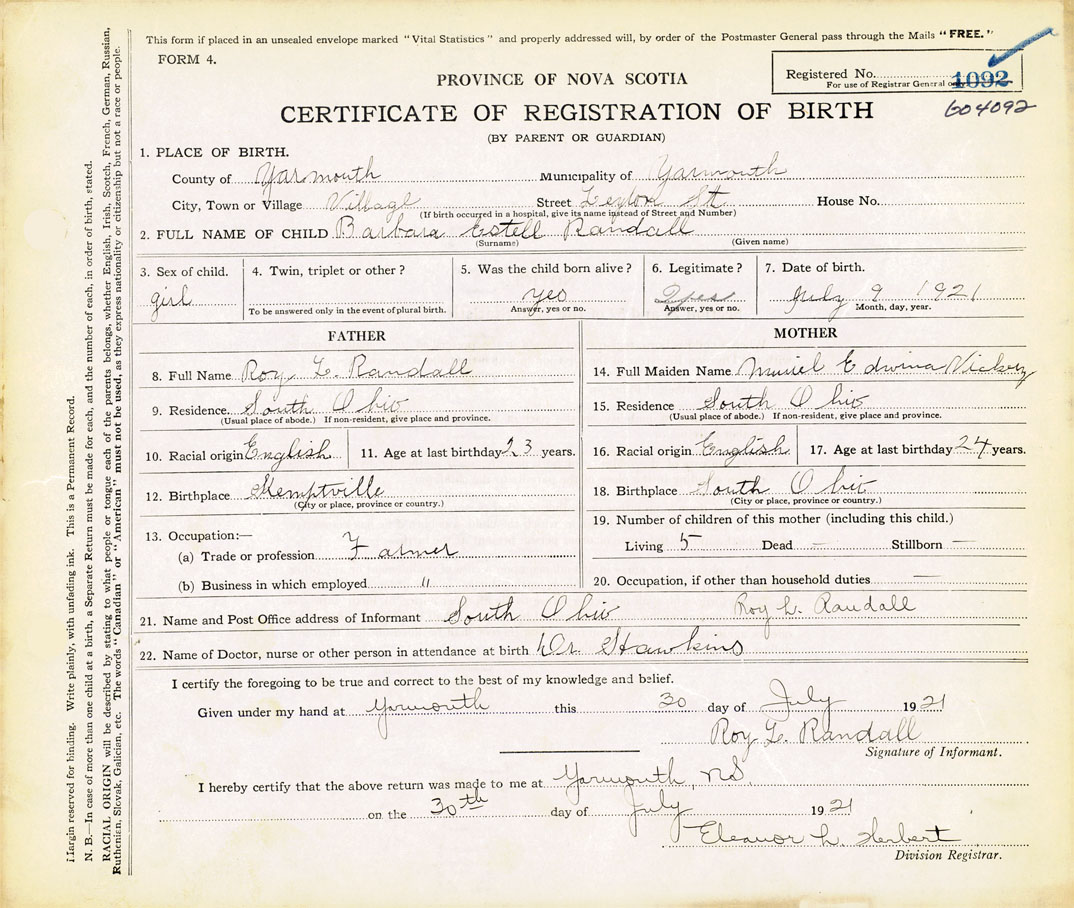 This form if placed in an unsealed envelope marked "Vital Statistics" and properly addressed will, by order of the Postmaster General pass through the Mails "FREE."
FORM 4.
PROVINCE OF NOVA SCOTIA
Registered No. 1092
For use of Registrar General
604092
CERTIFICATE OF REGISTRATION OF BIRTH
(BY PARENT OR GUARDIAN)
1. PLACE OF BIRTH.
County of Yarmouth Municipality of Yarmouth
City, Town or Village Village Street St House No.
(If birth occurred in a hospital, give its name instead of Street and Number)
2. FULL NAME OF CHILD Barbara Estell Randall
(Surname) (Given name)
3. Sex of child. 4. Twin, triplet or other? 5. Was the child born alive? 6. Legitimate? 7. Date of birth.
girl yes yes July 9 1921
To be answered only in the event of plural birth. Answer, yes or no. Answer, yes or no. Month, day, year.
FATHER
8. Full Name Roy L. Randall
9. Residence South Ohio
(Usual place of abode.) If non-resident, give place and province.
10. Racial origin English 11. Age at last birthday 23 years.
12. Birthplace Kemptville
(City or place, province or country.)
13. Occupation:—
(a) Trade or profession Farmer
(b) Business in which employed "
MOTHER
14. Full Maiden Name Muriel Edwina Vickery
15. Residence South Ohio
(Usual place of abode.) If non-resident, give place and province.
16. Racial origin English 17. Age at last birthday 24 years.
18. Birthplace South Ohio
(City or place, province or country.)
19. Number of children of this mother (including this child.)
Living 5 Dead — Stillborn —
20. Occupation, if other than household duties —
21. Name and Post Office address of Informant South Ohio Roy L. Randall
22. Name of Doctor, nurse or other person in attendance at birth Dr. Hawkins
I certify the foregoing to be true and correct to the best of my knowledge and belief.
Given under my hand at Yarmouth this 30 day of July 1921
Roy L. Randall
Signature of Informant.
I hereby certify that the above return was made to me at Yarmouth N.S.
on the 30th day of July 1921
Eleanor L. Herbert
Division Registrar.
Margin reserved for binding. Write plainly, with unfading ink. This is a Permanent Record.
N. B.—In case of more than one child at a birth, a Separate Return must be made for each, and the number of each, in order of birth, stated.
RACIAL ORIGIN will be described by stating to what people or tongue each of the parents belongs, whether English, Irish, Scotch, French, German, Russian,
Ruthenian, Slovak, Galician, etc. The words "Canadian" or "American" must not be used, as they express nationality or citizenship but not a race or people.